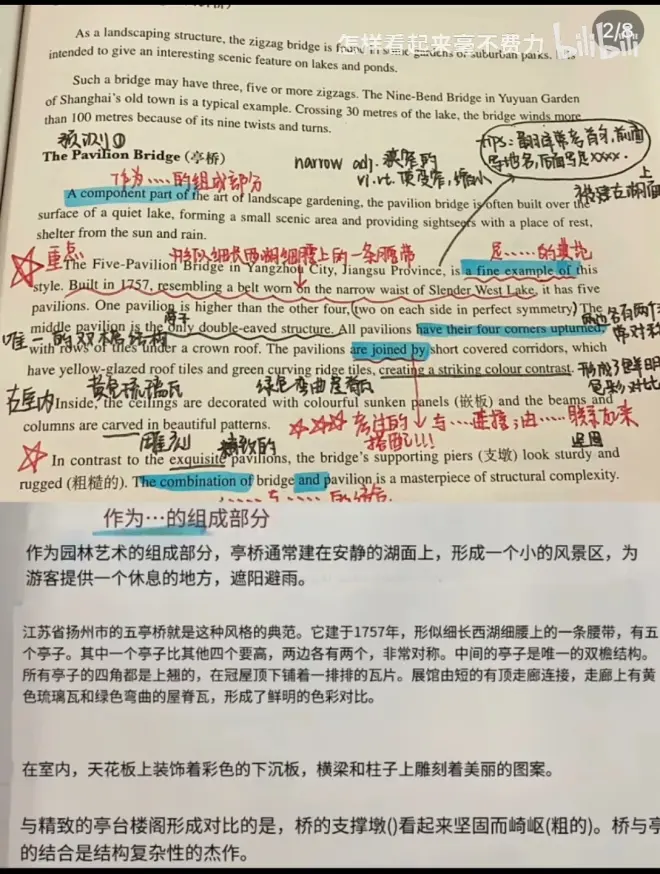 怎样看起来毫不费力
bilibili
2/8
As a landscaping structure, the zigzag bridge is found in some gardens or suburban parks.
intended to give an interesting scenic feature on lakes and ponds.
Such a bridge may have three, five or more zigzags. The Nine-Bend Bridge in Yuyuan Garden
of Shanghai's old town is a typical example. Crossing 30 metres of the lake, the bridge winds more
than 100 metres because of its nine twists and turns.
预测①
tips: 翻译常考首句,前面
写地名,后面写是xxxx.
The Pavilion Bridge (亭桥)
narrow adj. 狭窄的
vi.vt. 使变窄,缩小
作为....的组成部分
搭建在湖面上
A component part of the art of landscape gardening, the pavilion bridge is often built over the
surface of a quiet lake, forming a small scenic area and providing sightseers with a place of rest,
shelter from the sun and rain.
重点
形似细长西湖细腰上的一条腰带
是......的典范
The Five-Pavilion Bridge in Yangzhou City, Jiangsu Province, is a fine example of this
style. Built in 1757, resembling a belt worn on the narrow waist of Slender West Lake, it has five
pavilions. One pavilion is higher than the other four, (two on each side in perfect symmetry) The
亭子
middle pavilion is the only double-eaved structure. All pavilions have their four corners upturned,
唯一的双檐结构
with rows of tiles under a crown roof. The pavilions are joined by short covered corridors, which
have yellow-glazed roof tiles and green curving ridge tiles, creating a striking colour contrast.
形成了鲜明
色彩对比
黄色琉璃瓦
绿色弯曲屋脊瓦
在室内
Inside, the ceilings are decorated with colourful sunken panels (嵌板) and the beams and
columns are carved in beautiful patterns.
考过的
搭配!!!
与....连接;由....联系起来
雕刻
精致的
坚固
In contrast to the exquisite pavilions, the bridge's supporting piers (支墩) look sturdy and
rugged (粗糙的). The combination of bridge and pavilion is a masterpiece of structural complexity.
作为···的组成部分
作为园林艺术的组成部分，亭桥通常建在安静的湖面上，形成一个小的风景区，为
游客提供一个休息的地方，遮阳避雨。
江苏省扬州市的五亭桥就是这种风格的典范。它建于1757年，形似细长西湖细腰上的一条腰带，有五
个亭子。其中一个亭子比其他四个要高，两边各有两个，非常对称。中间的亭子是唯一的双檐结构。
所有亭子的四角都是上翘的，在冠屋顶下铺着一排排的瓦片。展馆由短的有顶走廊连接，走廊上有黄
色琉璃瓦和绿色弯曲的屋脊瓦，形成了鲜明的色彩对比。
在室内，天花板上装饰着彩色的下沉板，横梁和柱子上雕刻着美丽的图案。
与精致的亭台楼阁形成对比的是，桥的支撑墩()看起来坚固而崎岖(粗的)。桥与亭
的结合是结构复杂性的杰作。